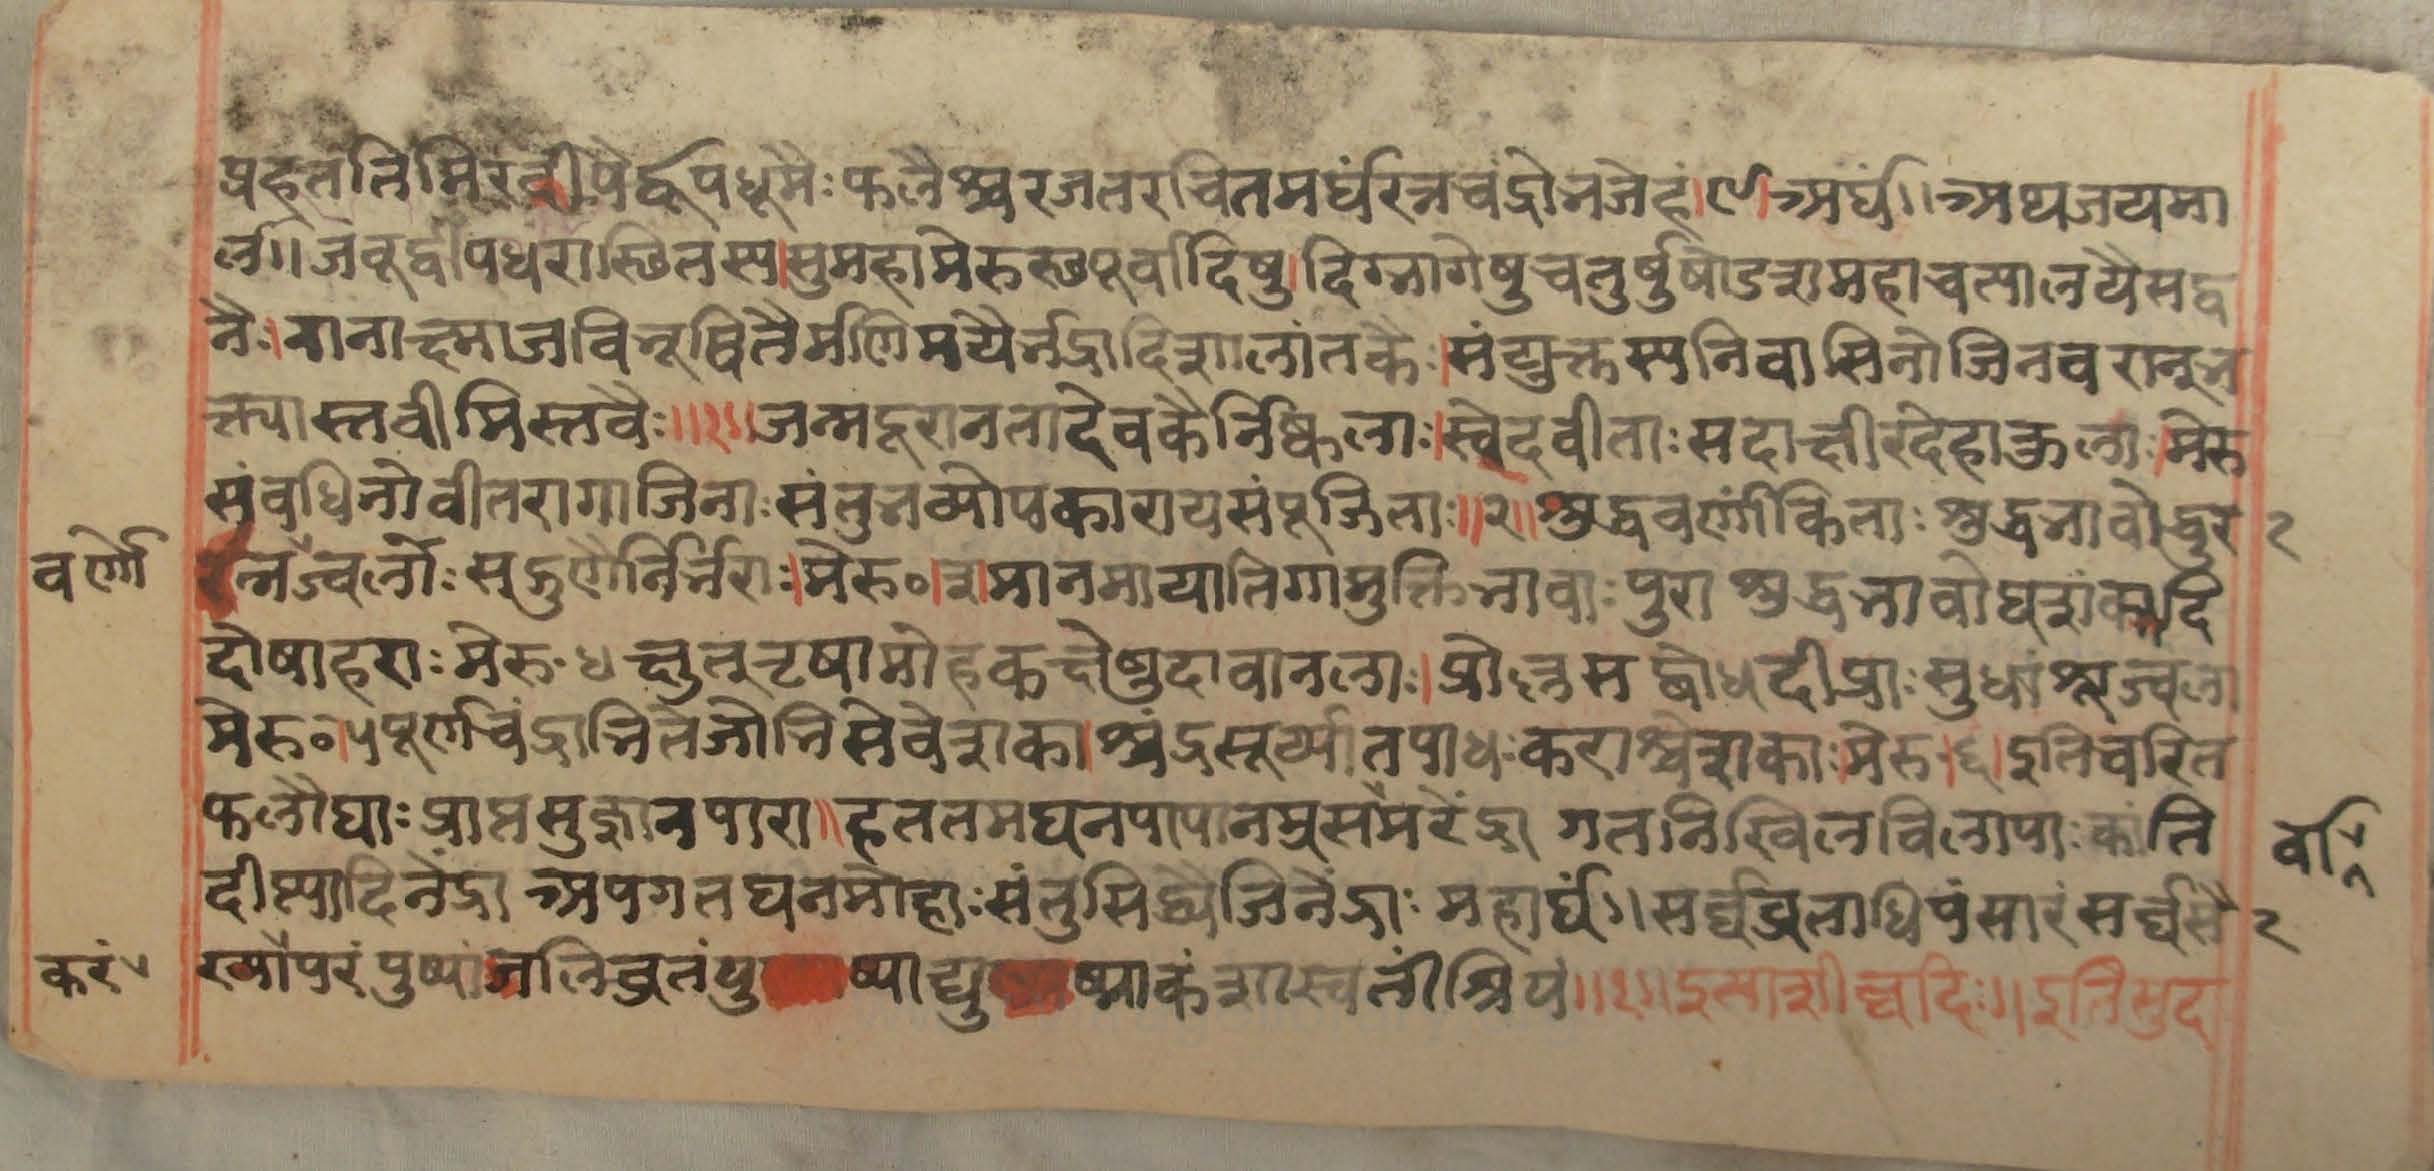 प्रहततिमिरदीपैर्द्धूपधूमैः फलैश्च रजतरचितमर्घं रत्नचंद्रो भजेहं।९। अर्घं।। अथ जयमा
ल।। जंबूद्वीपधरास्थितस्य।सुमहामेरुस्थपूर्वादिषु।दिग्भागेषु चतुर्षु षोडशमहाचैत्यालयैसद्व
नैः।नानाक्ष्माजविभूषितैर्मणिमयैर्भद्रादिशालांतकैः।संयुक्तस्य निवासिनो जिनवरान् भ
क्त्यास्तवीमि स्तवैः।।१।। जन्मदूरानतादेवकैर्निष्कलाः।स्वेदवीताः सदाक्षीरदेहाकुलाः।मेरु
संबधिनो वीतरागा जिनाः संतु भव्योपकाराय संपूजिताः।।२।। शुद्धवर्णांकिताः शुद्धभावोद्धुर २
वर्णो रत्नज्वलोः सद्गुणैर्निर्भराः।मेरु०।३।मानमायातिगा मुक्तिभावाः पुरा शुद्धभावोघशंकादि
दोषाहराः मेरु ४ क्षुतृट्षामोहकक्षेषुदावानलाः।प्रोल्लसद्बोधदीप्राः सुधांश्रूज्वला
मेरु०।५ पूर्णचंद्राभितेजोभिसेवेशका।श्चंद्रसूर्य्यातपाधःकराश्चेशकाः मेरु।६। इति चरित
फलौघाः प्राप्तसुज्ञानपारा।।हततमघनपापा नम्रसर्मरेंद्रा गतनिखिलविलापाः कांति
र्वा
दीप्त्यादिनेंद्रा अपगतघनमोहाः संतु सिद्ध्यै जिनेंद्राः महार्घं।। सर्व्वव्रताधिपं सारं सर्व्वसै २
करं रख्यौपरं पुष्पांजलिव्रतं पु ष्याद्यु ष्माकं शास्वतीं श्रियं।।१।। इत्याशीर्व्वादः।। इति सुद